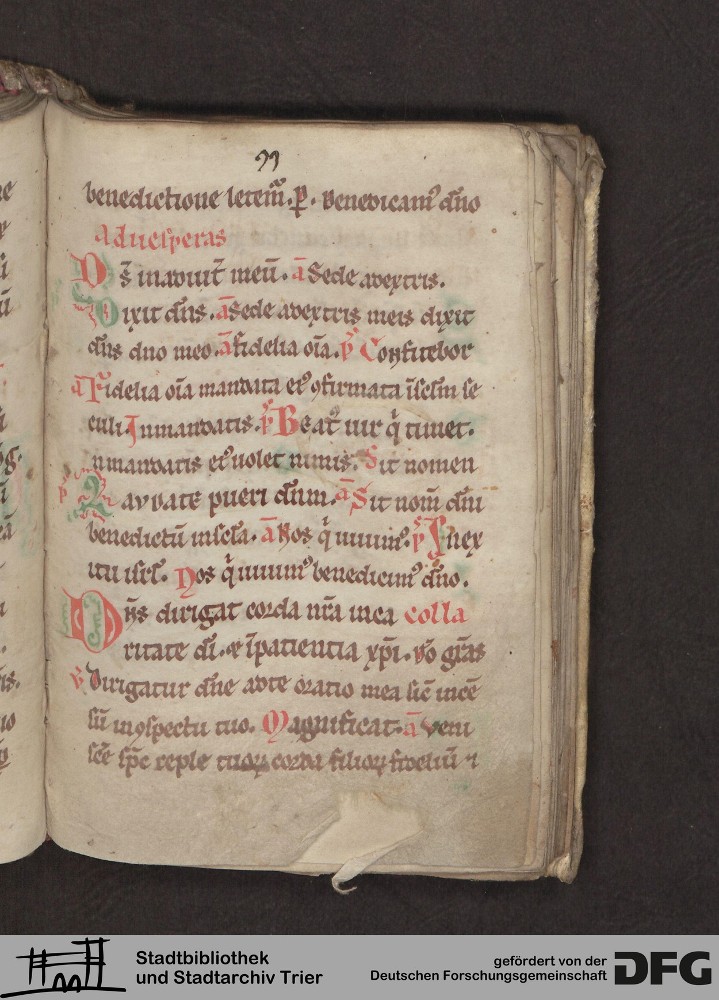 99
benedictione letem̄. ꝑ. benedicam᷒ dn̄o
aduesperas
D s̄ in adiut̄ meū. ā Sede adextris.
Dixit dn̄s. ā Sede adextris meis dixit
dn̄s dno meo. ā fidelia oīa. p̄ Confitebor
ā Fidelia oīa mandata ei᷒ ꝯfirmata īsclm̄ se
culi. Inmandatis. p̄ Beat᷒ uir q̄ timet.
nmandatis ei᷒ uolet nimis. Sit nomen
Laudate pueri dn̄m. ā Sit nom̄ dn̄i
benedictū inscl̄a. ā Nos q̄ uiuim᷒. p̄ Inex
itu isrl̄. Nos q̄ uiuim᷒ benedicim᷒ dn̄o.
Dn̄s dirigat corda nr̄a inca colla
ritate dī. ⁊ īpatientia xp̄i. Do gr̄as
v̄ Dirigatur dn̄e adte oratio mea sic̄ incē
sū inꝯspectu tuo. Magnificat. ā Veni
sc̄e sp̄c reple tuoꝝ corda filioꝝ fideliū ⁊
Stadtbibliothek
und Stadtarchiv Trier
gefördert von der
Deutschen Forschungsgemeinschaft
DFG